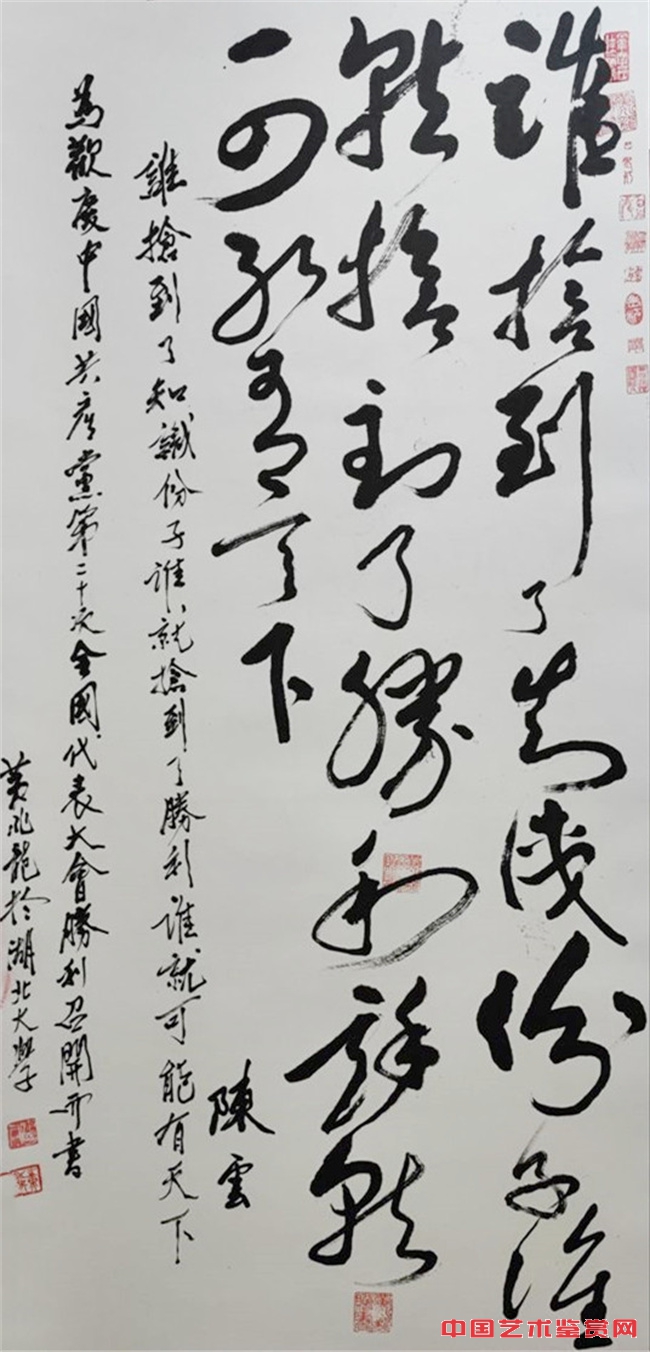 誰搶到了知識份子誰
就搶到了勝利誰就
可能有天下
陳雲
誰搶到了知識份子誰就搶到了勝利誰就可能有天下
為歡慶中國共產黨第二十次全國代表大會勝利召開而書
黄兆龍於湖北大學
中国艺术鉴赏网